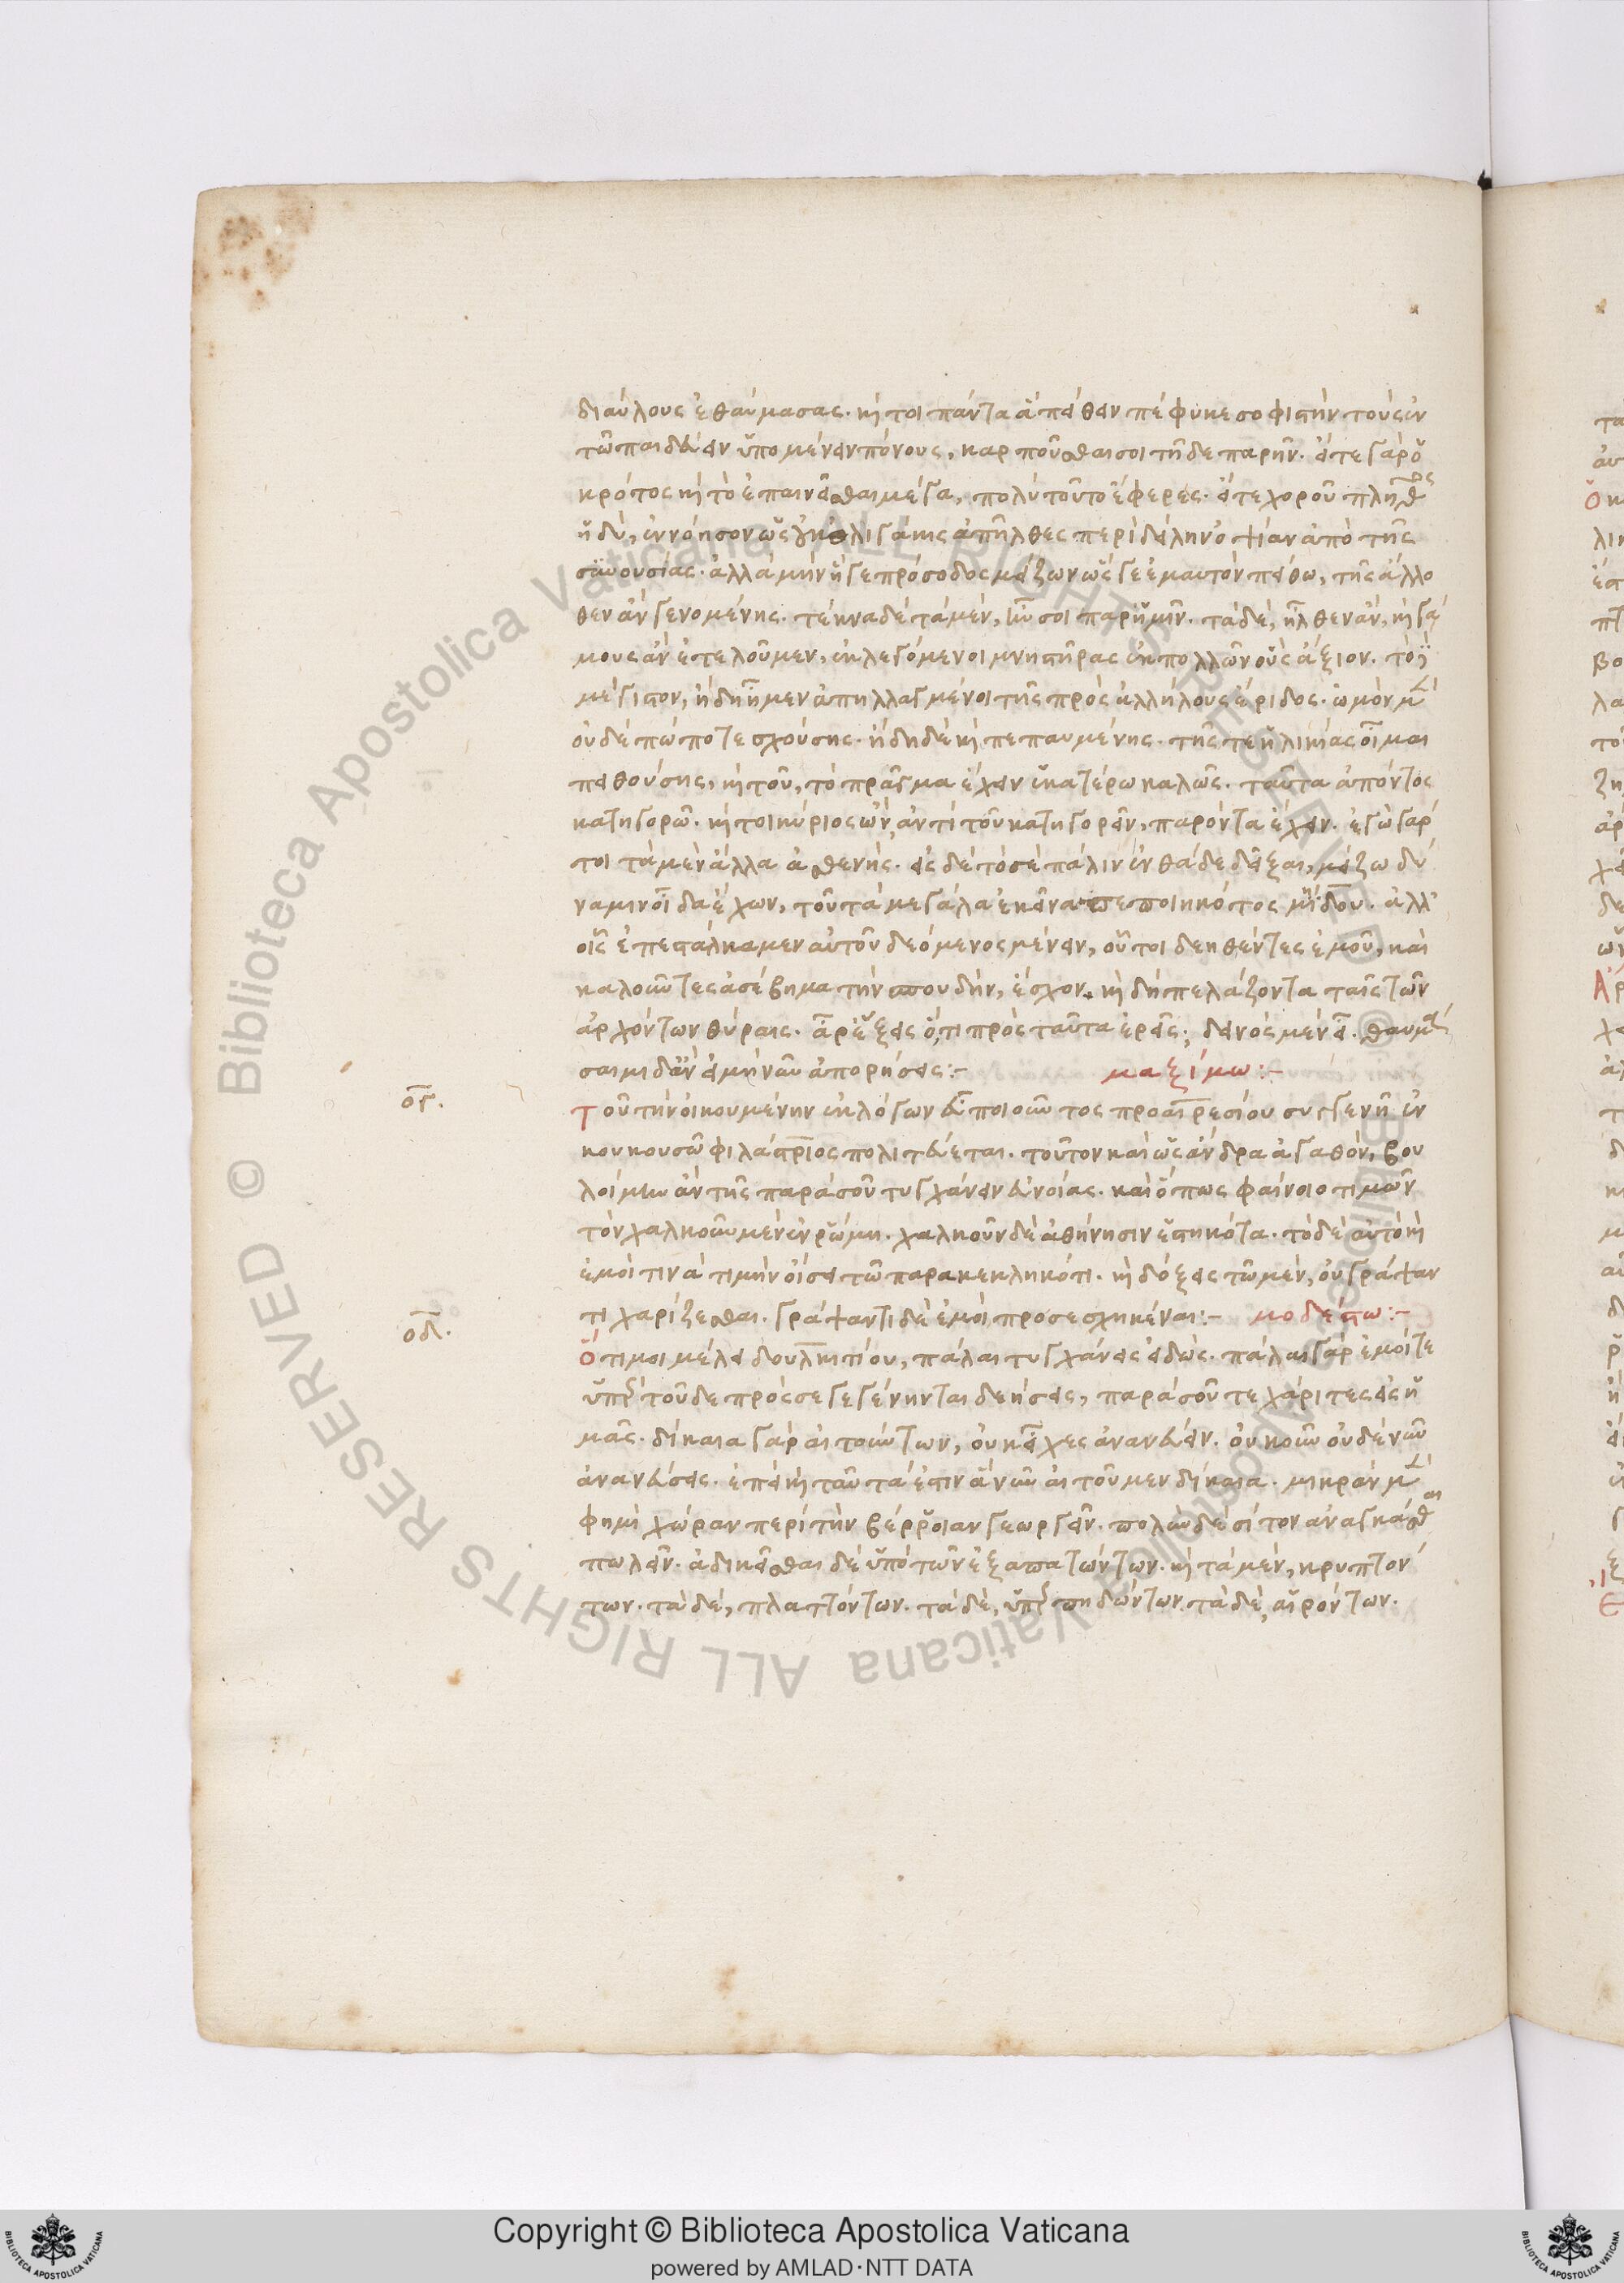 διαύλους ἐθαύμασας. καί τοι πάντα ἃ πείθειν πέφυκε σοφιστὴν τοὺς ἐν
τῶ παιδεύειν ὑπομένειν πόνους, καρποῦσθαι σοι τῆδε παρῆν. εἴτε γὰρ ὁ
κρότος καὶ τὸ ἐπαινεῖσθαι μέγα, πολὺ τοῦτο ἔφερες. εἴτε χοροῦ πλῆθος
ἡδὺ, ἐννόησον ὡς ὀλιγάκις ἀπῆλθες περὶ δείλην ὀψίαν ἀπὸ τῆς
συνουσίας. ἀλλὰ μὴν ἥ γε πρόσοδος μείζων ὥς γε ἐμαυτὸν πείθω, τῆς ἄλλο
θεν ἂν γενομένης. τέκνα δὲ τὰ μὲν, ἦν σοι παρ' ἡμῖν. τὰ δὲ, ἦλθεν ἂν, καὶ γά
μους ἂν ἐτελοῦμεν, ἐκλεγόμενοι μνηστῆρας ἐκ πολλῶν οὓς ἄξιον. τό
μέγιστον, ἤδη ἦμεν ἀπηλλαγμένοι τῆς πρὸς ἀλλήλους ἔριδος. ὠμὸν μὲν
οὐδέπώποτε σχούσης. ἤδη δὲ καὶ πεπαυμένης. τῆς τε ἡλικίας οἶμαι
πειθούσης, καὶ τοῦ, τὸ πρᾶγμα ἔχειν ἑκατέρω καλῶς. ταῦτα ἀπόντος
κατηγορῶ. καί τοι κύριος ὢν, ἀντὶ τοῦ κατηγορεῖν, παρόντα ἔχειν. ἐγὼ γάρ
τοι τὰ μὲν ἄλλα ἀσθενής. εἰς δὲ τὸ σὲ πάλιν ἐνθάδε δεῖξαι, μείζω δύ
ναμιν οἶδα ἔχων, τοῦ τὰ μεγάλα ἐκεῖνα πεποιηκότος μίδου. ἀλλ'
οἷς ἐπεστάλκαμεν αὐτοῦ δεόμενος μένειν, οὗτοι δεηθέντες ἐμοῦ, καὶ
καλοῦντες ἀσέβημα τὴν σπουδήν, ἔσχον. καὶ δὴ πελάζοντα ταῖς τῶν
ἀρχόντων θύραις. ἆρ' ἕξεις ὅ,τι πρὸς ταῦτα ἐρεῖς; δεινὸς μὲν εἶ. θαυμά
σαιμι δ' ἂν εἰ μὴ νῦν ἀπορήσεις:-  μαξίμω:-
ογ. Τοῦ τὴν οἰκουμένην ἐκ λόγων εὖ ποιοῦντος προαιρεσίου συγγενῆ ἐν
κουκουσῶ φιλάστριος πολιτεύεται. τοῦτον καὶ ὡς ἄνδρα ἀγαθὸν, βου
λοίμην ἂν τῆς παρὰ σοῦ τυγχάνειν εὐνοίας. καὶ ὅπως φαίνοιο τιμῶν
τὸν χαλκοῦν μὲν ἐν ῥώμη. χαλκοῦν δὲ ἀθήνησιν ἑστηκότα. τὸ δὲ αὐτὸ καὶ
ἐμοί τινα τιμὴν οἴσει τῶ παρακεκληκότι. καὶ δόξεις τῶ μὲν, οὐ γράψαν
τι χαρίζεσθαι. γράψαντι δὲ ἐμοὶ προσεσχηκέναι:-  μοδέστω:-
οδ. Ὅτι μοι μέλει δουλκιτίου, πάλαι τυγχάνεις εἰδώς. πάλαι γὰρ ἐμοί τε
ὑπὲρ τοῦδε πρὸς σὲ γεγένηνται δεήσεις, παρὰ σοῦ τε χάριτες εἰς ἡ
μᾶς. δίκαια γὰρ αἰτούντων, οὐκ εἶχες ἀνανεύειν. οὐκοῦν οὐδὲ νῦν
ἀνανεύσεις. ἐπεὶ καὶ ταῦτά ἐστιν ἃ νῦν αἰτοῦμεν δίκαια. μικρὰν μὲν
φημὶ χώραν περὶ τὴν βέρροιαν γεωργεῖν. πολὺν δὲ σῖτον ἀναγκάσθαι
πωλεῖν. ἀδικεῖσθαι δὲ ὑπὸ τῶν ἐξαπατώντων. καὶ τὰ μὲν, κρυπτόν
των. τὰ δέ, πλαττόντων. τὰ δὲ, ὑπὲρπηδώντων. τὰ δὲ, αἱρόντων.
Copyright © Biblioteca Apostolica Vaticana
powered by AMLAD·NTT DATA
Biblioteca Apostolica Vaticana ALL RIGHTS RESERVED ©
Biblioteca Apostolica Vaticana ALL RIGHTS RESERVED ©